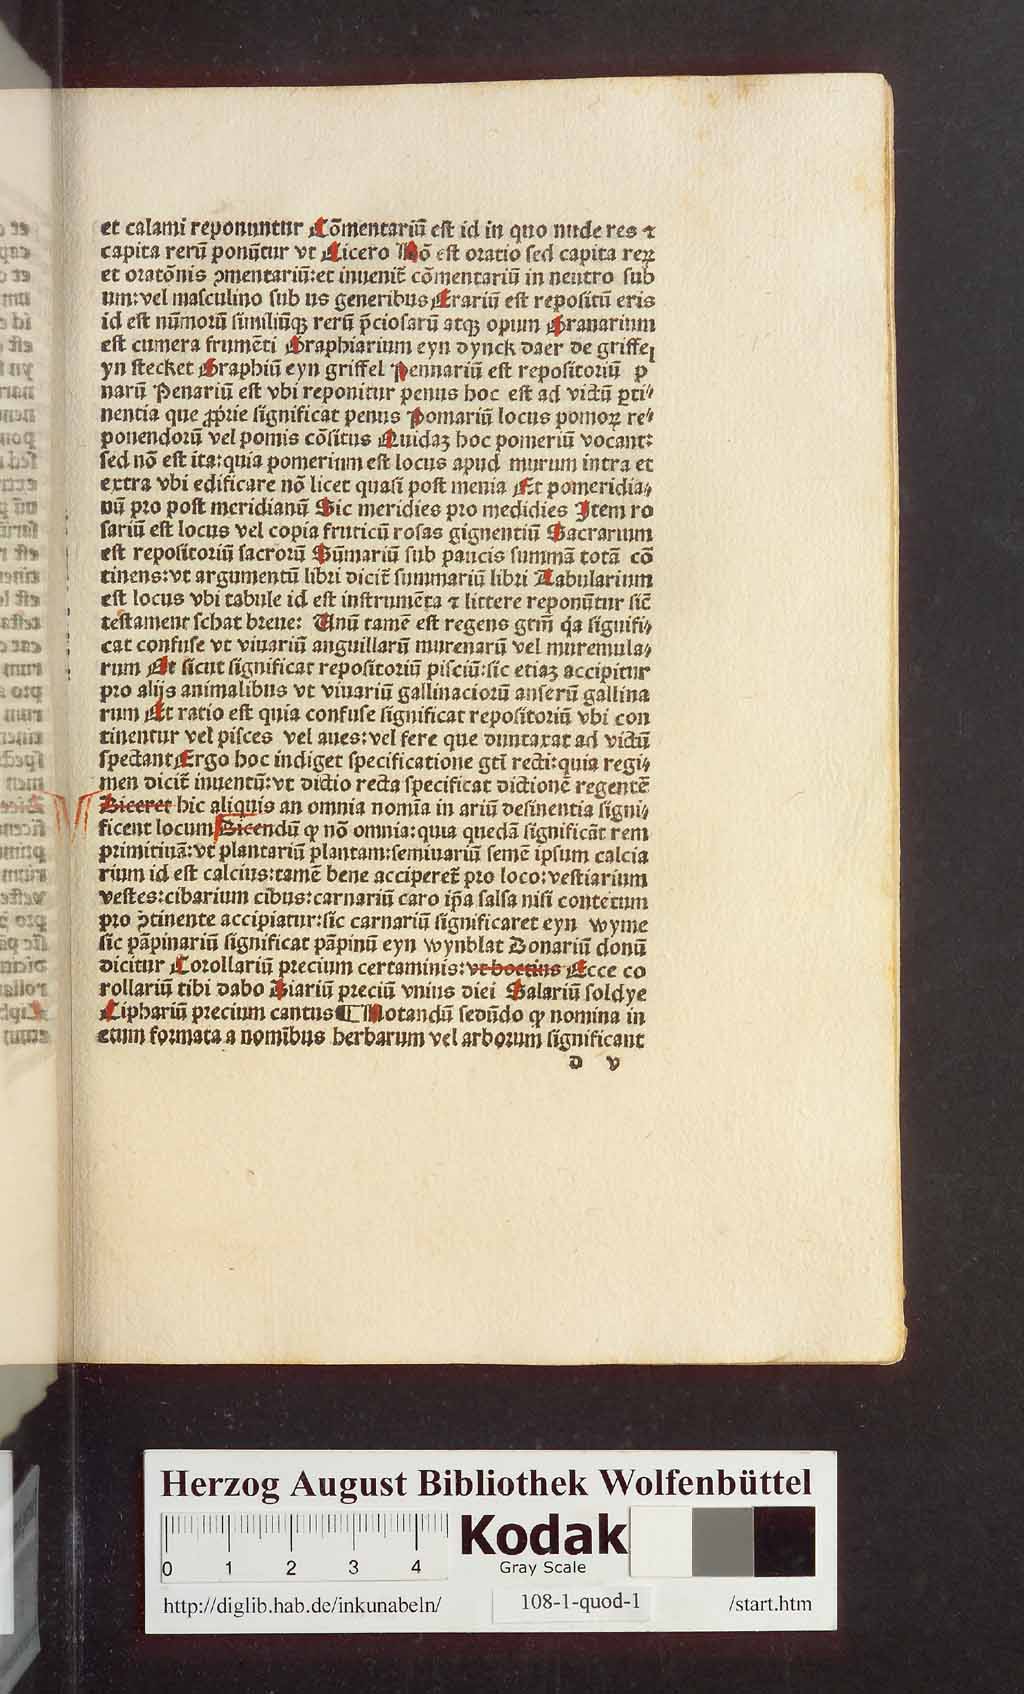 et calami reponuntur Cōmentariū est id in quo nude res ⁊
capita rerū ponūtur vt Cicero Nō est oratio sed capita reꝝ
et oratōnis ꝯmentariū: et inuenit̄ cōmentariū in neutro sub
um: vel masculino sub us generibus Erariū est repositū eris
id est nūmorū similiūqꝫ rerū p̄ciosarū atqꝫ opum Granarium
est cumera frumēti Graphiarium eyn dynck daer de griffel
yn stecket Graphiū eyn griffel Pennariū est repositoriū p
narū Penariū est vbi reponitur penus hoc est ad victū ꝑti⸗
nentia que ꝓprie significat penus Pomariū locus pomoꝝ re⸗
ponendorū vel pomis cōsitus Quidaꝫ hoc pomeriū vocant:
sed nō est ita: quia pomerium est locus apud murum intra et
extra vbi edificare nō licet quasi post menia Et pomeridia⸗
nū pro post meridianū Sic meridies pro medidies Item ro
sariū est locus vel copia fruticū rosas gignentiū Sacrarium
est repositoriū sacrorū Sūmariū sub paucis summā totā cō
tinens: vt argumentū libri dicit̄ summariū libri Tabularium
est locus vbi tabule id est instrumēta ⁊ littere reponūtur sic̄
testament schat breue: Unū tamē est regens gtm̄ q̄a signifi⸗
cat confuse vt viuariū anguillarū murenarū vel muremula⸗
rum Et sicut significat repositoriū pisciū: sic etiaꝫ accipitur
pro alijs animalibus vt viuariū gallinaciorū anserū gallina
rum Et ratio est quia confuse significat repositoriū vbi con
tinentur vel pisces vel aues: vel fere que duntaxat ad victū
spectant Ergo hoc indiget specificatione gti̅ recti: quia regi⸗
men dicit̄ inuentū: vt dictio recta specificat dictionē regentē
Diceret hic aliquis an omnia nomīa in ariū desinentia signi⸗
ficent locum Dicendū ꝙ nō omnia: quia quedā significāt rem
primitiuā: vt plantariū plantam: seminariū semē ipsum calcia
rium id est calcius: tamē bene acciperet̄ pro loco: vestiarium
vestes: cibarium cibus: carnariū caro ip̄a salsa nisi contetum
pro ꝯtinente accipiatur: sic carnariū significaret eyn wyme
sic pāpinariū significat pāpinū eyn wynblat Donariū donū
dicitur Corollariū precium certaminis: vt boetius Ecce co
rollariū tibi dabo Diariū preciū vnius diei Salariū soldye
Liphariū precium cantus ¶ Notandū secūdo ꝙ nomina in
etum formata a nomībus herbarum vel arborum significant
d v
Herzog August Bibliothek Wolfenbüttel
0 1 2 3 4
Kodak
Gray Scale
http://diglib.hab.de/inkunabeln/ 108-1-quod-1 /start.htm